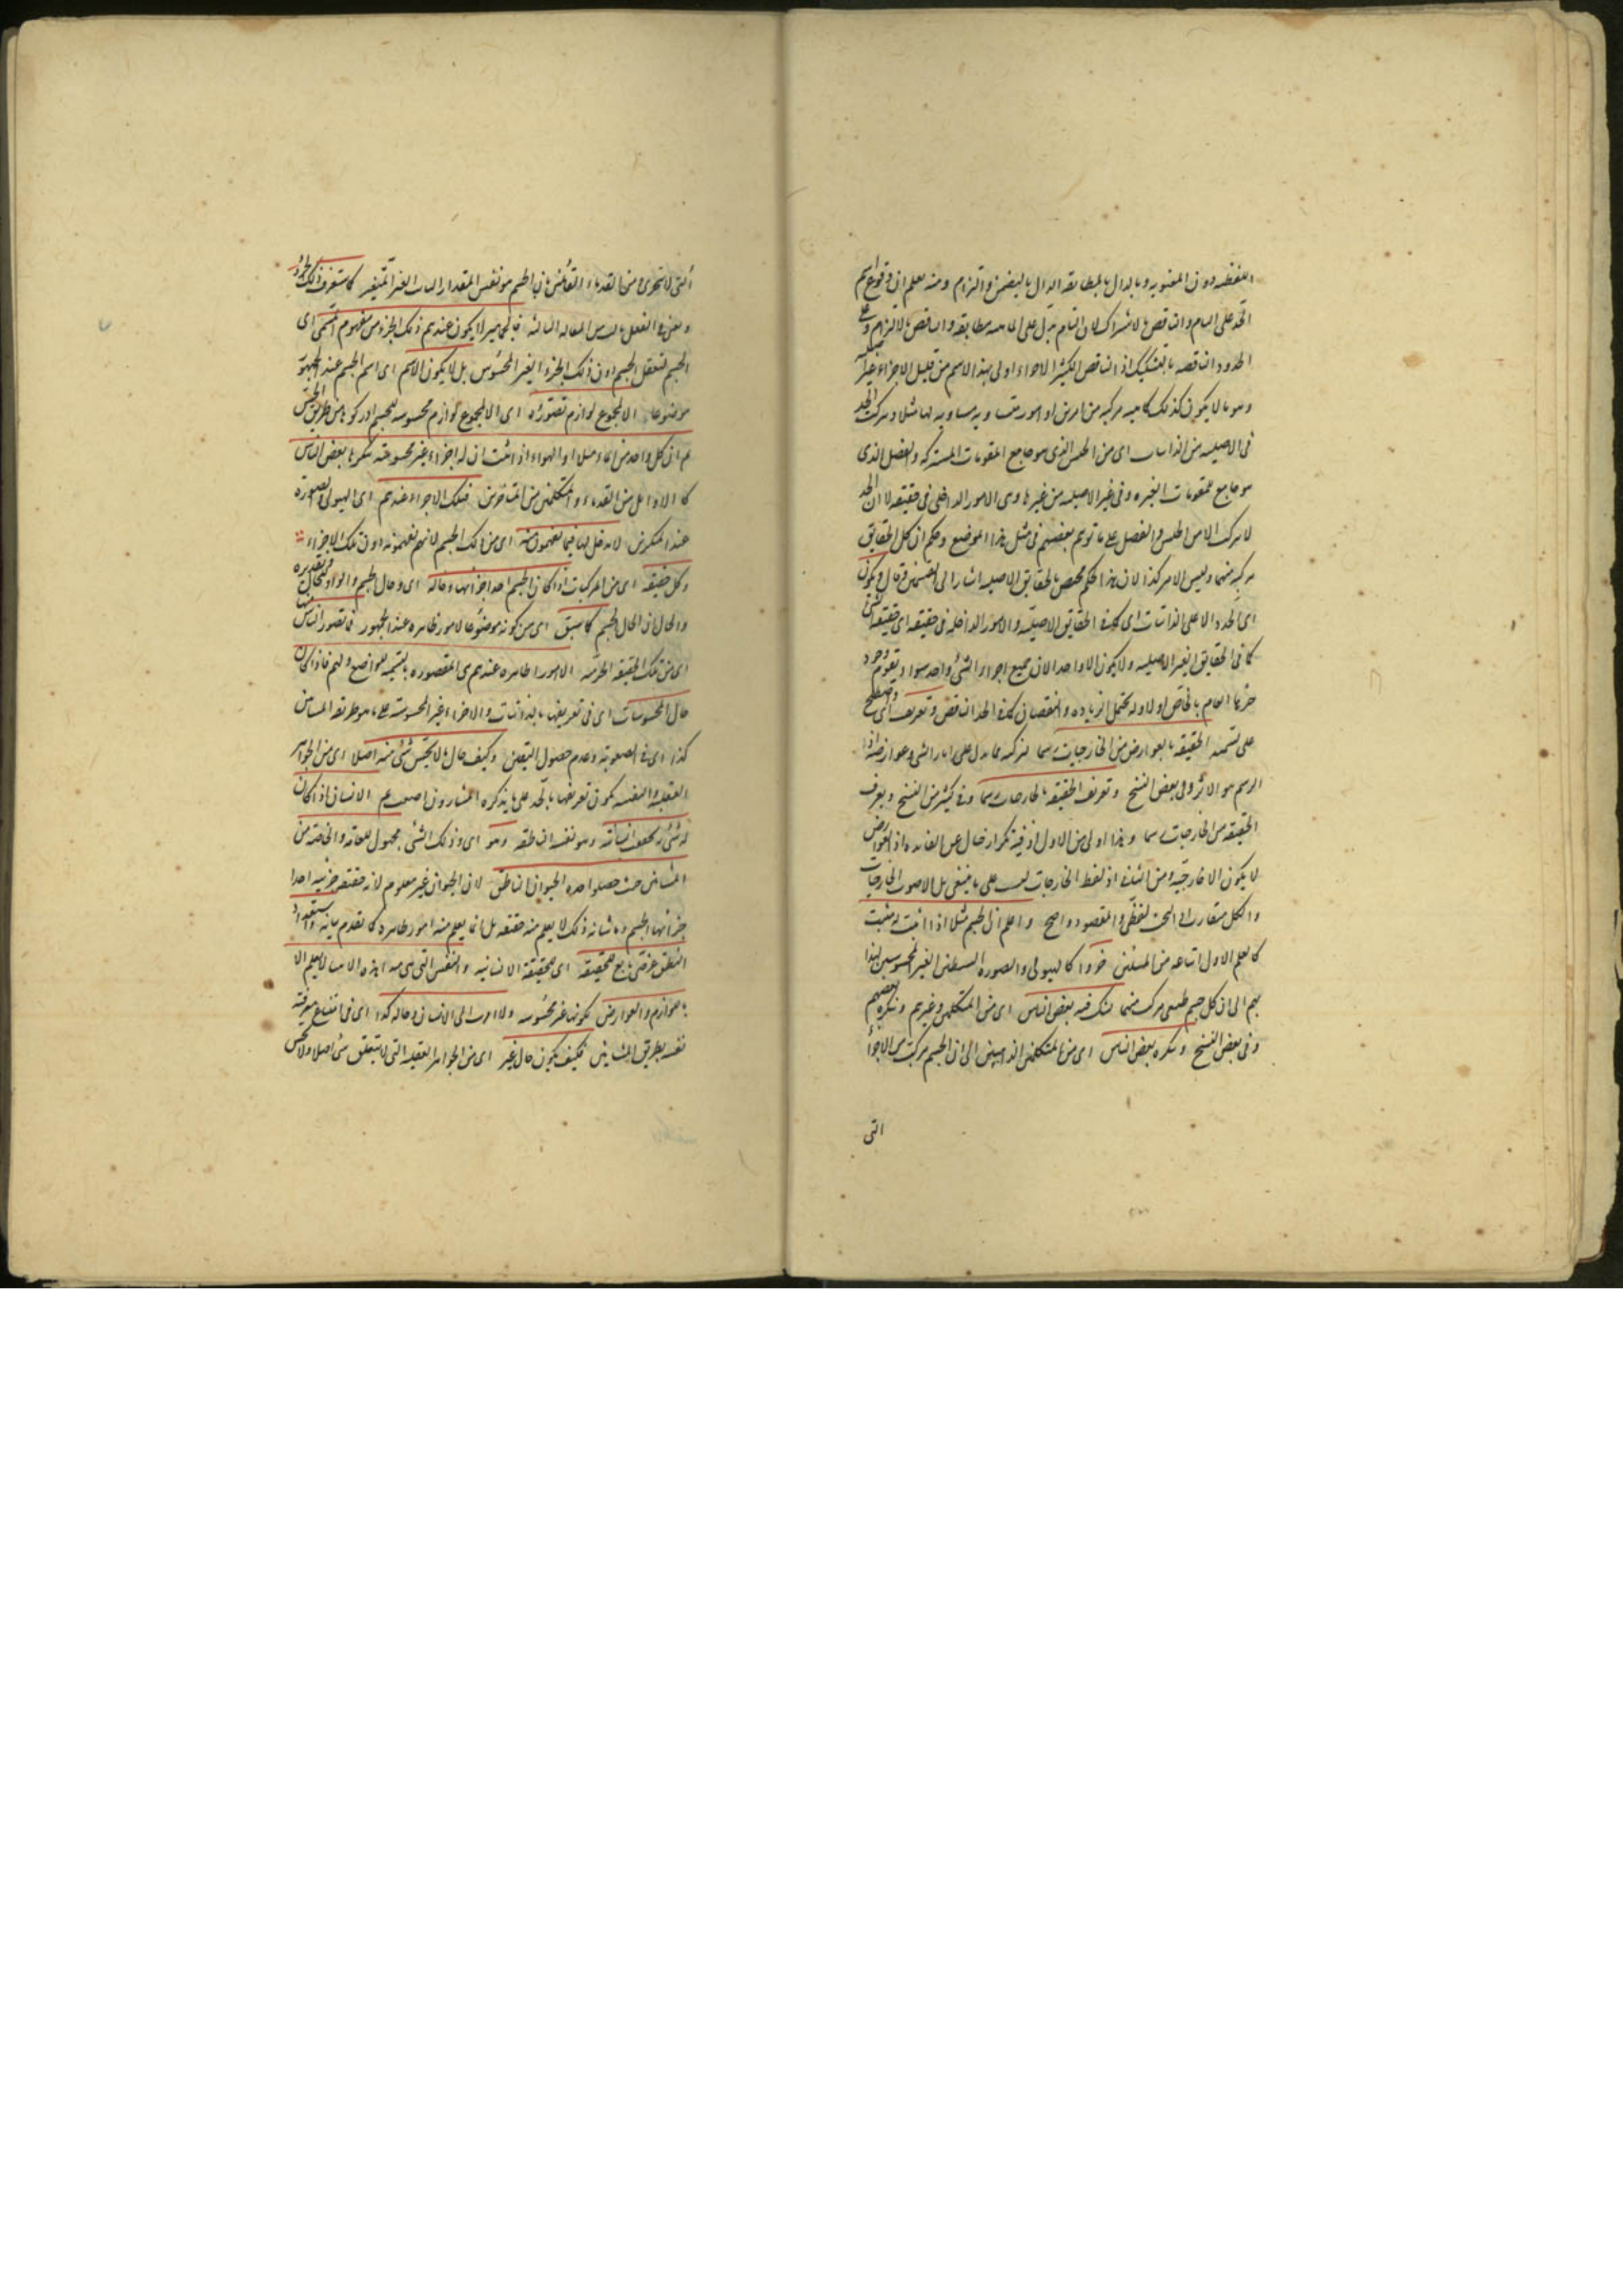 اللفظيه دون المعنويه وبالدال بالمطابقه الدال بالتضمن والتزام ومنه يعلم ان وقوع اسم
الحد على التام والناقص بالاشتراك لان التام يدل على الماهيه مطابقه والناقص بالالتزام وعلى
الحدود الناقصه بالتشكيك اذ الناقص الكثير الاجزاء اولى بهذا الاسم من قليل الاجزاء
وهو ما لا يكون كذلك كماهيه مركبه من امرين او امور متساويه لها مثلا ويتركب الحد
فى الاصليه من الذاتيات اى من الجنس الذى هو جامع المقومات المشتركه والفصل الذى
هو جامع المقومات المميزه وفى غير الاصليه من غيرها وهى الامور الداخلى فى حقيقته لا ان الحد
لا يتركب الا من الجنس والفصل على ما توهم بعضهم فى مثل هذا الموضع وحكم ان كل الحقايق
مركبه منهما وليس الامر كذا لان هذا الحكم مختص بالحقايق الاصليه اشار الى القسمين وقال ويكون
اى الحد دالا على الذاتيات اى كما فى الحقايق الاصليه والامور الداخله فى حقيقته اى حقيقه الشئ
كما فى الحقايق الغير الاصليه ولا يكون الا واحدا لان جميع اجزاء الشئ واحد سواء
العام بالخاص اولا ولا يحتمل الزياده والنقصان كما فى الحد الناقص وتعريف اى واصطلح
على تسميه الحقيقه بالعوارض من الخارجيات رسما لتركبه مما يدل على اثار الشئ وعوارضه اذ
الرسم هو الاثر وفى بعض النسخ وتعريف الحقيقه بالخارجيات رسما وفى كثير من النسخ ويعرف
الحقيقه من الخارجيات رسما وهذا اولى من الاول اذ فيه تكرار خال عن الفائده اذ العوارض
لا يكون الا خارجيه ومن الثانى اذ لفظ الخارجيات ليست على ما ينبغى بل الاصوب الخارجيات
والكل متقارب اذ البحث لفظى والمقصود واضح واعلم ان الجسم مثلا اذا اثبت له مثبت
كالمعلم الاول اتباعه من المشائين جزءا كالهيولى والصوره الغير المحسوسين لهذا
بهم الى ان كل جسم طبيعى مركب منهما يشك فيه بعض الناس اى من المتكلمين وغيرهم وينكره بعضهم
وفى بعض النسخ وينكره بعض الناس اى من المتكلمين الذاهبين الى ان الجسم مركب من الاجزاء
التى
التى لا تتجزى ومن القدماء القائلين بان الجسم هو نفس المقدار الثابت الغير المتغير كما ستعرف ذلك الجزء
فالجماهير لا يكون عندهم ذلك الجزء من مفهوم المسمى اى
الجسم لتعقل الجسم دون ذلك الجزء الغير المحسوس بل لا يكون الاسم اى اسم الجسم عند الجمهور
موضوعا الا لمجموع لوازم تصوروه اى الا لمجموع لوازم محسوسه للجسم ادركوها من طريق الحس
ثم ان كل واحد من الماء مثلا او الهواء اذا ثبت ان له اجزاء غير محسوسه ينكرها بعض الناس
كالاوائل من القدماء والمتكلمين من المتاخرين فتلك الاجزاء عندهم اى الهيولى والصوره
عند المنكرين لا مدخل لها فيما يفهمون منه اى من ذلك الجسم لانهم يفهمونه دون تلك الاجزاء
وكل حقيقه اى من المركبات اذا كان الجسم احد اجزائها وحاله اى وحال الجسم والواو للحال وتقديره
والحال ان حال الجسم كما سبق اى من كونه موضوعا لامور ظاهره عند الجمهور فما تصور الناس منها
اى من تلك الحقيقه الجرميه الا امورا ظاهره عندهم هى المقصوده بالتسميه للواضع ولهم فاذا كان
حال المحسوسات اى فى تعريفها بالذاتيات والاجزاء غير المحسوسه على ما هو طريقه المشائين
كذا اى فى الصعوبه وعدم حصول اليقين وكيف حال ما لا يحس شئ منه اصلا اى من الجواهر
العقليه والنفسيه يكون تعريفها بالحد على ما يذكره المشاؤون اصعب ثم الانسان اذا كان
له شئ به تحققت انسانيته وهو نفسه الناطقه وهو اى وذلك الشئ مجهول للعامه والخاصه من
المشائين حيث جعلوا حده الحيوان الناطق لان الحيوان غير معلوم لانه حقيقه جرميه احد
جزائها الجسم وما شانه ذلك لا يعلم منه حقيقه بل انما يعلم منه امور ظاهره كما تقدم بيانه واستعداد
النطق عرضى تابع للحقيقه اى للحقيقه الانسانيه والنفس التى هى مبدا هذه الاشيا لا يعلم الا
باللوازم والعوارض لكونها غير محسوسه ولا اقرب الى الانسان وحاله كذا اى فى امتناع معرفه
نفسه بطريق المشائين فكيف يكون حال غير اى من الجواهر العقليه التى لا يتعلق شئ اصلا ولا يحس